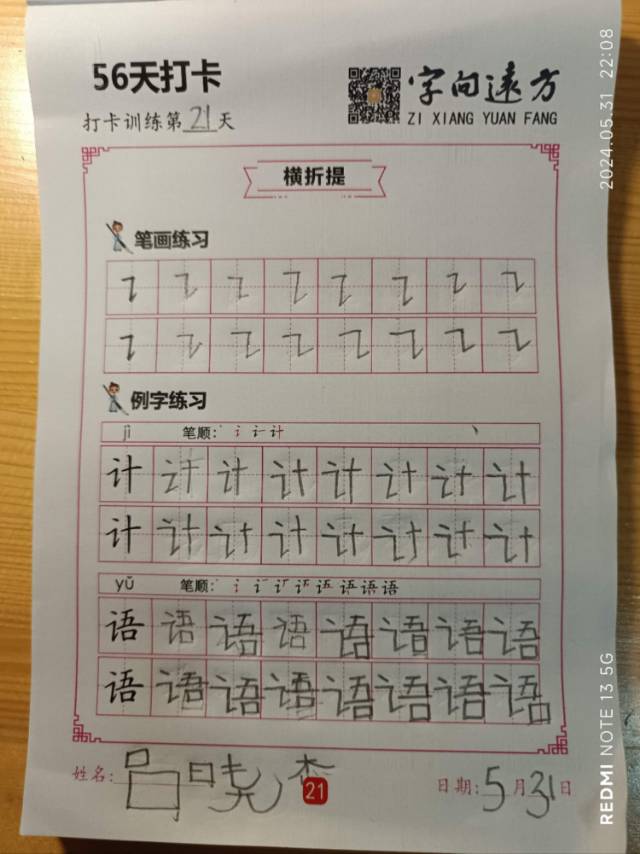 56天打卡
字向远方
打卡训练第21天
ZI XIANG YUAN FANG
横折提
笔画练习
例字练习
jì 笔顺:
计 计 计 计 计 计 计 计
计 计 计 计 计 计 计 计
yǔ 笔顺: 语
语 语 语 语 语 语 语 语
语 语 语 语 语 语 语 语
姓名: 吕晓杰
21
日期: 5月31日
2024.05.31 22:08
REDMI NOTE 13 5G